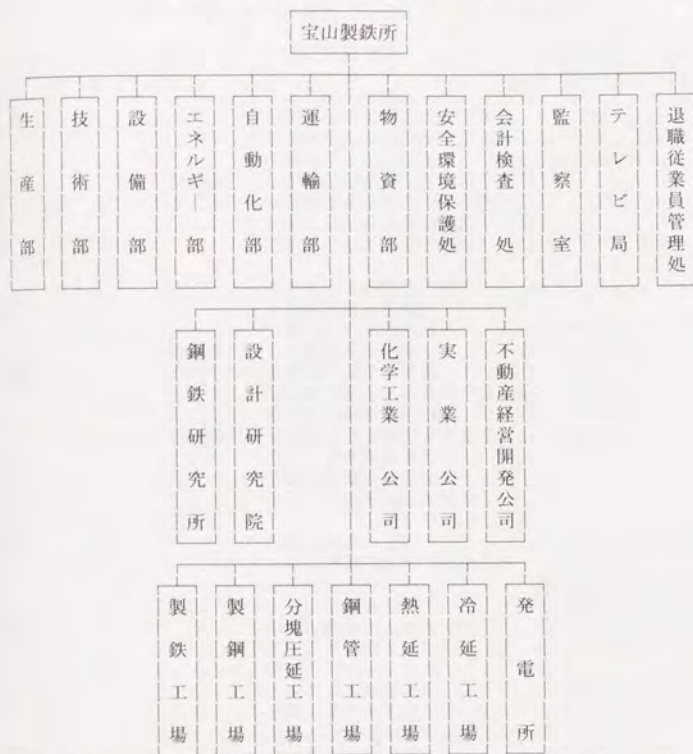 宝山製鉄所
生産部
技術部
設備部
エネルギー部
自動化部
運輸部
物資部
安全環境保護処
会計検査処
監察室
テレビ局
退職従業員管理処
鋼鉄研究所
設計研究院
化学工業公司
実業公司
不動産経営開発公司
製鉄工場
製鋼工場
分塊圧延工場
鋼管工場
熱延工場
冷延工場
発電所